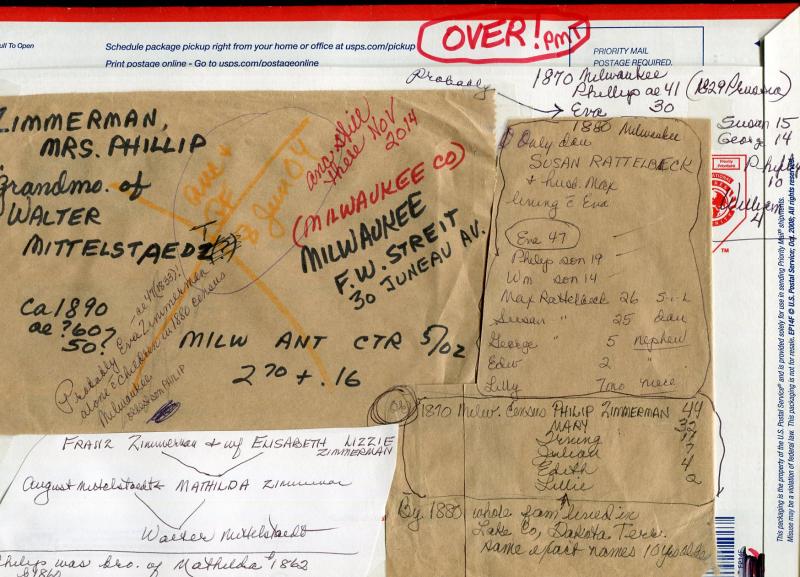 ull To Open
Schedule package pickup right from your home or office at usps.com/pickup
Print postage online - Go to usps.com/postageonline
OVER! PMT
PRIORITY MAIL
POSTAGE REQUIRED.
Probably
1870 Milwaukee
Phillip ae 41 (1829 Prussia)
Eva 30
Susan 15
George 14
Philip
10
William
4
ZIMMERMAN,
MRS. PHILLIP
grandmo. of
WALTER
MITTELSTAEDT
ana still
there Nov
2014
(MILWAUKEE CO)
MILWAUKEE
F.W. STREIT
30 JUNEAU AV.
Jun 04
Ca 1890
ae ? 60?
50?
MILW ANT CTR 5/02
270 + .16
Probably Eva Zimmerman
ae 47 (1833)!
alone & children in 1880 census
Milwaukee
1880 Milwaukee
Only dau
SUSAN RATTELBECK
& husb. Max
living c̄ Eva
Eva 47
Philip son 19
Wm son 14
Max Rattelbeck 26 S-i-L
Susan " 25 dau
George " 5 nephew
Edw " 2 "
Lilly 7mo niece
1870 Milw. Census PHILIP ZIMMERMAN 44
MARY 32
Irving
Julian 7
Edith 4
Lillie 2
By 1880 whole fam lived in
Lake Co, Dakota Terr.
same exact names 10 yrs older
FRANZ Zimmerman & wf ELISABETH LIZZIE
ZIMMERMAN
August Mittelstaedt & MATHILDA Zimmerman
Walter Mittelstaedt
Philip was bro. of Mathilda b 1862
b 1860
This packaging is the property of the U.S. Postal Service® and is provided solely for use in sending Priority Mail® shipments.
Misuse may be a violation of federal law. This packaging is not for resale. EP14F © U.S. Postal Service; Oct. 2008; All rights reserved.